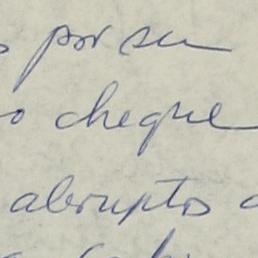 por su
cheque
abruptos